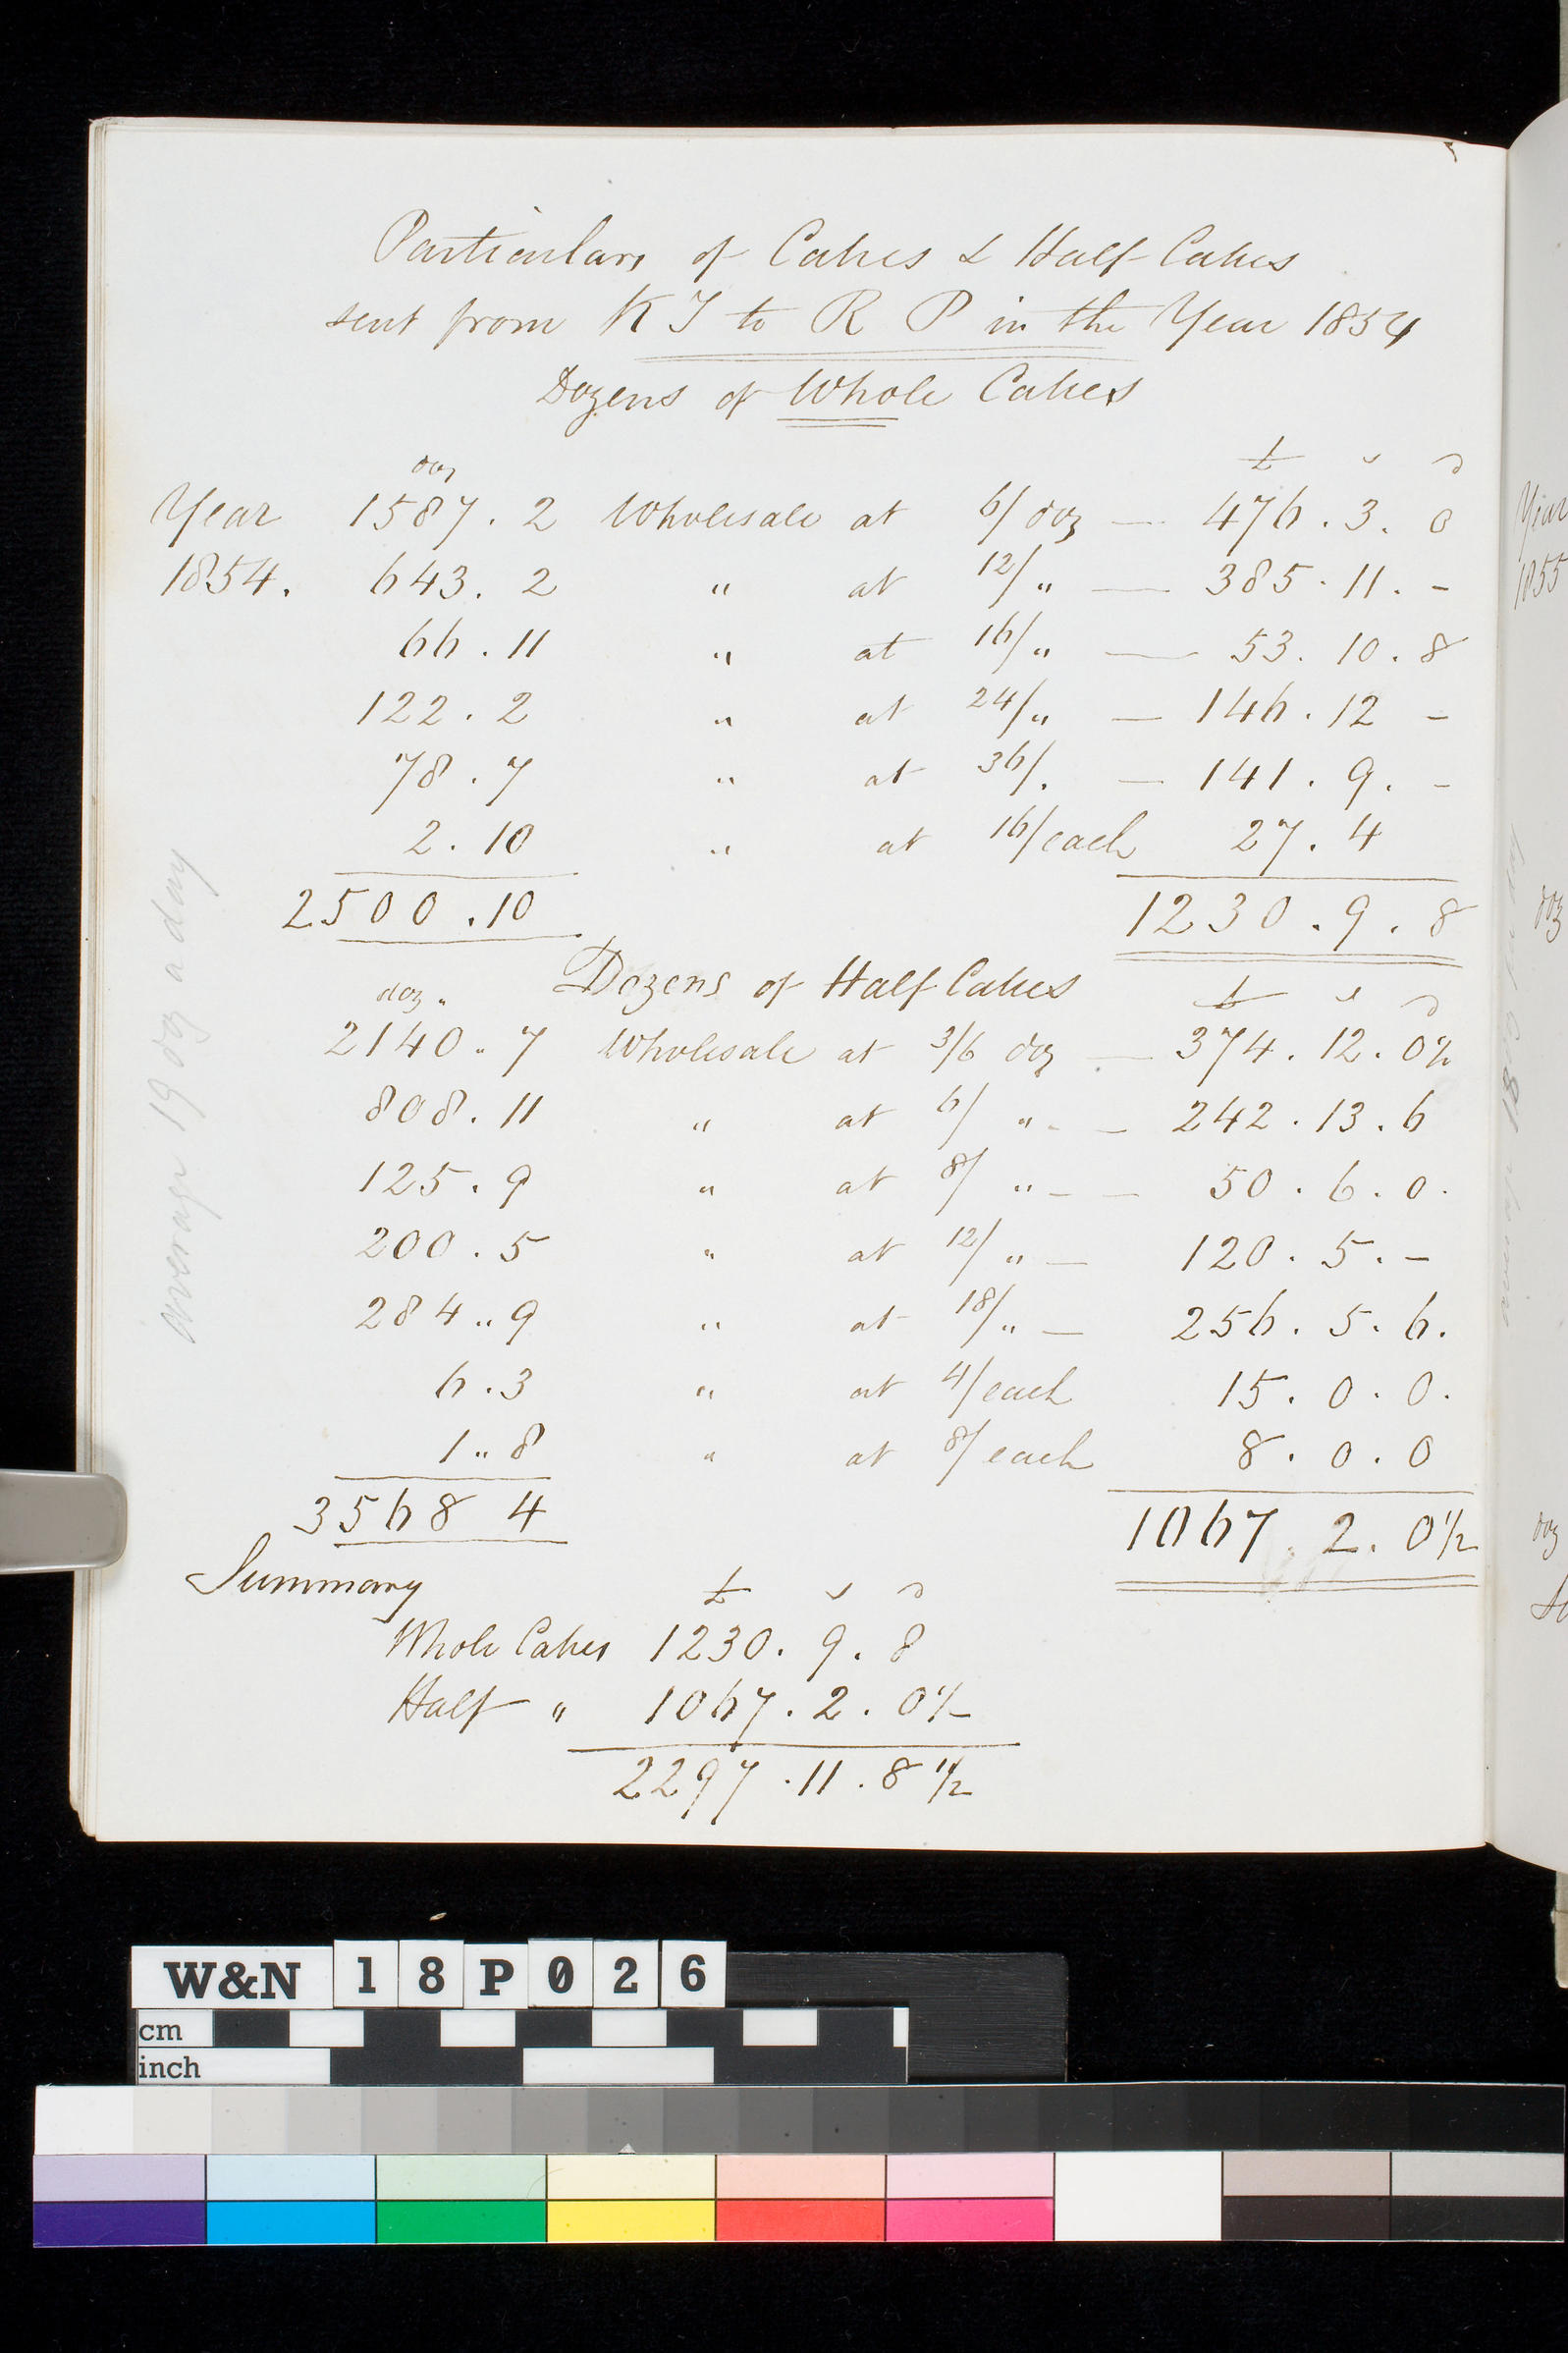 Particulars of Cakes & Half Cakes
sent from K T to R P in the Year 1854
Dozens of Whole Cakes
doz £ s d
Year 1587 . 2 Wholesale at 6/ doz — 476 . 3 . 0
1854. 643 . 2 " at 12/ " — 385 . 11 . -
66 . 11 " at 16/ " — 53 . 10 . 8
122 . 2 " at 24/ " — 146 . 12 -
78 . 7 " at 36/ . — 141 . 9 . -
2 . 10 " at 16/ each 27 . 4
2500 . 10 1230 . 9 . 8
Dozens of Half Cakes
doz " £ s d
2140 " 7 Wholesale at 3/6 doz — 374 . 12 . 0½
808 . 11 " at 6/ " - — 242 . 13 . 6
125 . 9 " at 8/ " — — 50 . 6 . 0 .
200 . 5 " at 12/ " — 120 . 5 . -
284 " 9 " at 18/ " — 256 . 5 . 6 .
6 . 3 " at 4/ each 15 . 0 . 0 .
1 " 8 " at 8/ each 8 . 0 . 0
3568 4 1067 . 2 . 0½
Summary £ s d
Whole Cakes 1230 . 9 . 8
Half " 1067 . 2 . 0½
2297 . 11 . 8½
average 19 doz a day
Year
1855
doz
doz
W&N 18P026
cm
inch